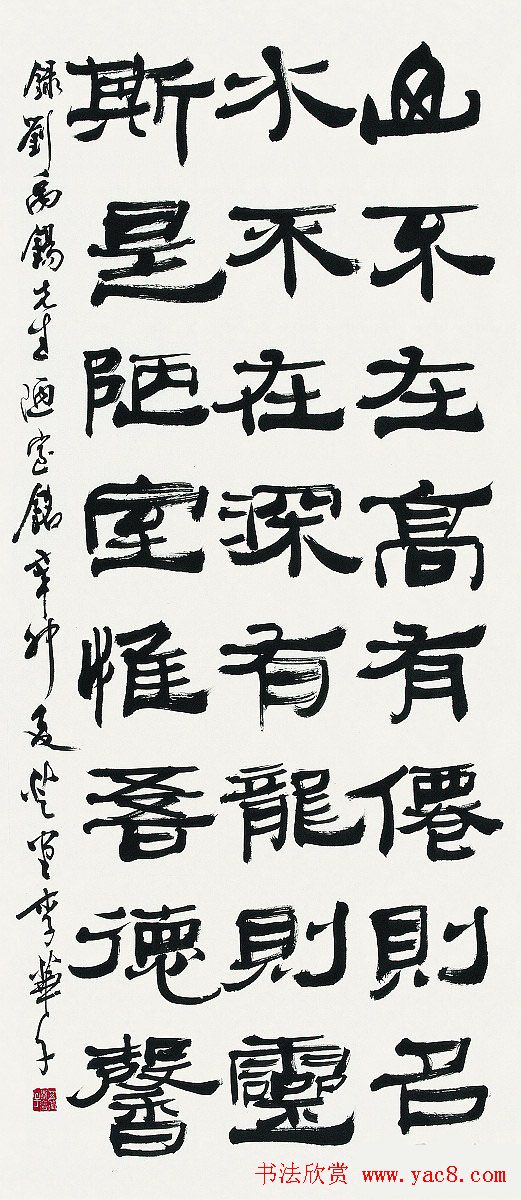 山不在高有僊則名
水不在深有龍則靈
斯是陋室惟吾德馨
録劉禹錫先生陋室銘辛卯夏堂李華
书法欣赏 www.yac8.com